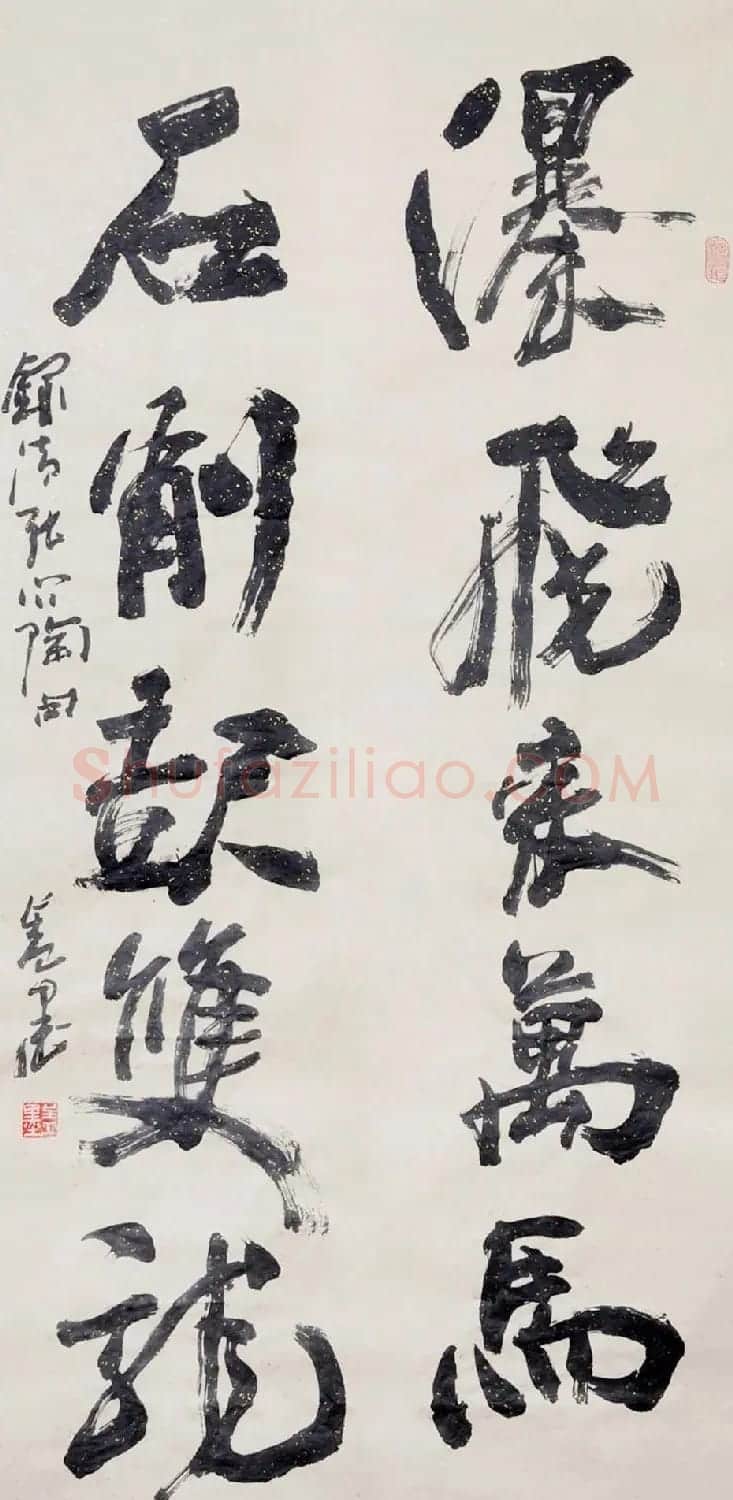 瀑飛來萬馬
石削起雙龍
錄清張問陶句
Shufaziliao.COM